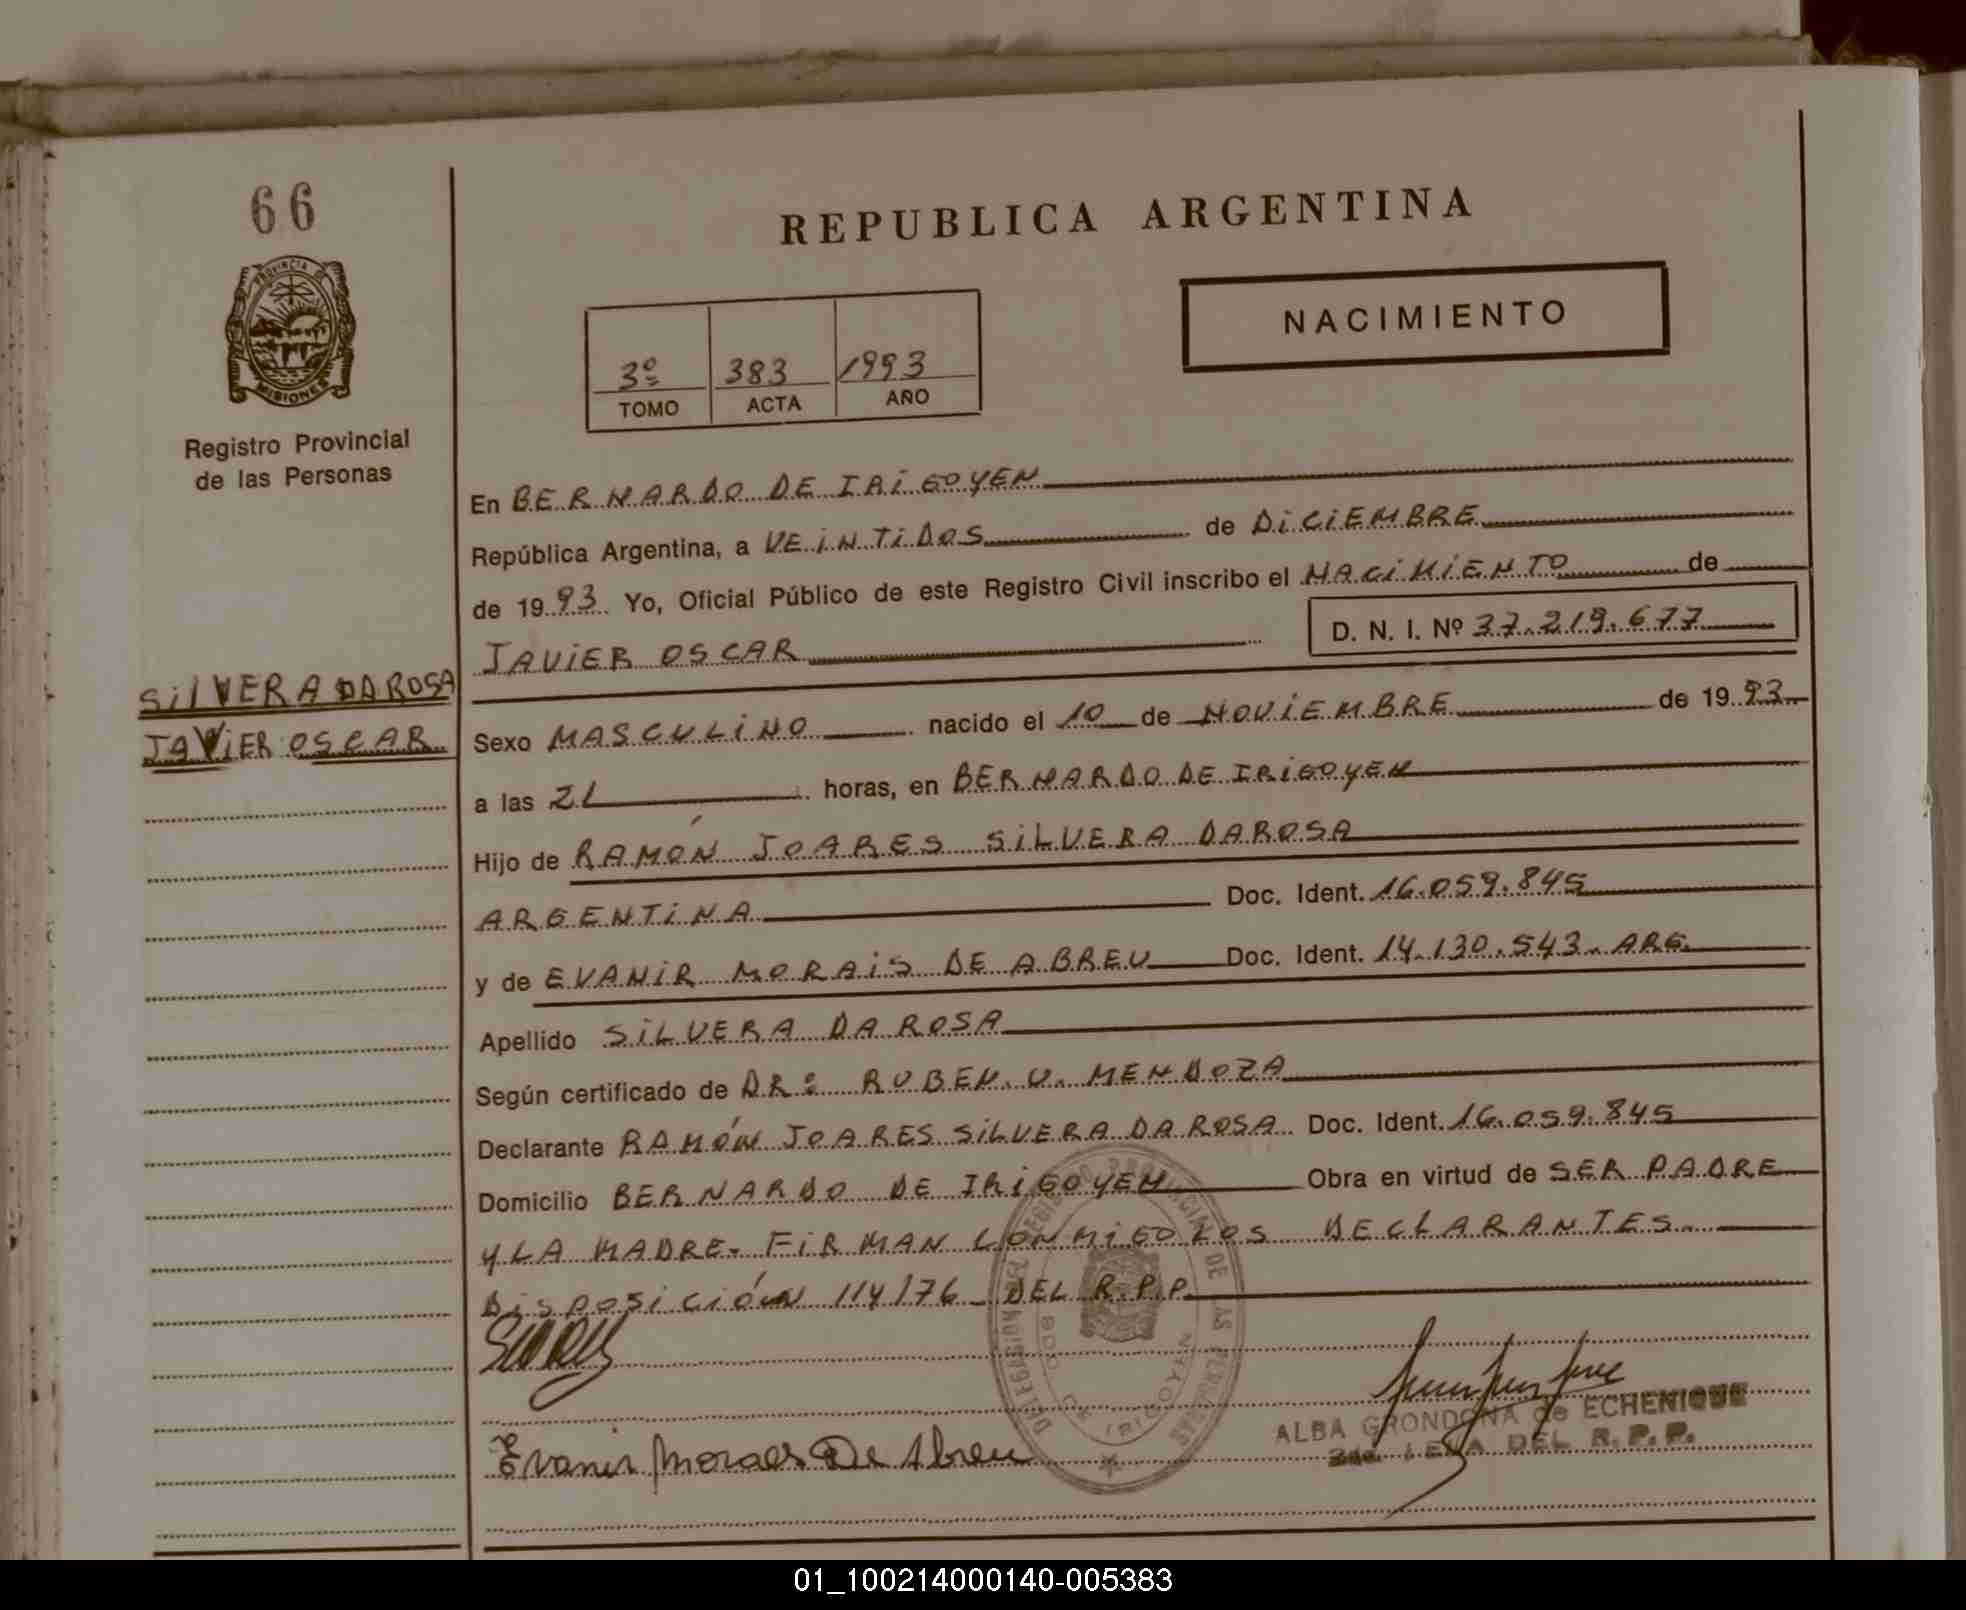 66
PROVINCIA DE
MISIONES
Registro Provincial
de las Personas
SILVERA DA ROSA
JAVIER OSCAR
REPUBLICA ARGENTINA
NACIMIENTO
3º 383 1993
TOMO ACTA AÑO
En BERNARDO DE IRIGOYEN
República Argentina, a VEINTIDOS de DICIEMBRE
de 1993 Yo, Oficial Público de este Registro Civil inscribo el NACIMIENTO de
JAVIER OSCAR D. N. I. Nº 37.219.677
Sexo MASCULINO nacido el 10 de NOVIEMBRE de 1993
a las 21 horas, en BERNARDO DE IRIGOYEN
Hijo de RAMÓN JOARES SILVERA DA ROSA
ARGENTINA Doc. Ident. 16.059.845
y de EVANIR MORAIS DE ABREU Doc. Ident. 14.130.543. ARG.
Apellido SILVERA DA ROSA
Según certificado de DR: RUBEN. U. MENDOZA
Declarante RAMÓN JOARES SILVERA DA ROSA Doc. Ident. 16.059.845
Domicilio BERNARDO DE IRIGOYEN Obra en virtud de SER PADRE
Y LA MADRE. FIRMAN CONMIGO LOS DECLARANTES.
DISPOSICIÓN 114/76 DEL R.P.P.
Evanir Moraes De Abreu
DELEGACION DEL REGISTRO PROVINCIAL DE LAS PERSONAS
BDO DE IRIGOYEN
ALBA GRONDONA de ECHENIQUE
DEL R.P.P.
01_100214000140-005383